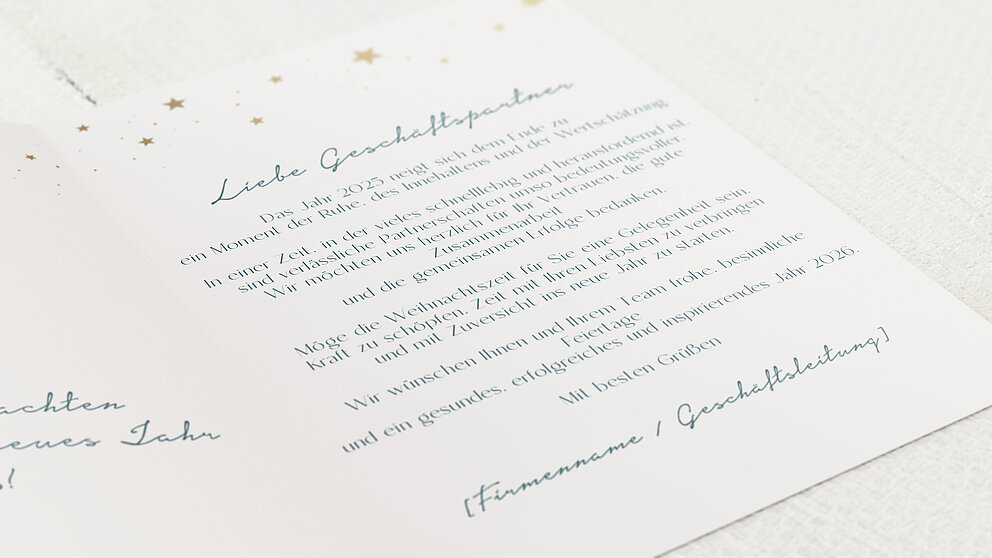 Liebe Geschäftspartner
Das Jahr 2025 neigt sich dem Ende zu
ein Moment der Ruhe, des Innehaltens und der Wertschätzung.
In einer Zeit, in der vieles schnelllebig und herausfordernd ist,
sind verlässliche Partnerschaften umso bedeutungsvoller.
Wir möchten uns herzlich für Ihr Vertrauen, die gute
Zusammenarbeit
und die gemeinsamen Erfolge bedanken.
Möge die Weihnachtszeit für Sie eine Gelegenheit sein,
Kraft zu schöpfen, Zeit mit Ihren Liebsten zu verbringen
und mit Zuversicht ins neue Jahr zu starten.
Wir wünschen Ihnen und Ihrem Team frohe, besinnliche
Feiertage
und ein gesundes, erfolgreiches und inspirierendes Jahr 2026.
Mit besten Grüßen
[Firmenname / Geschäftsleitung]
achten
eues Jahr
!